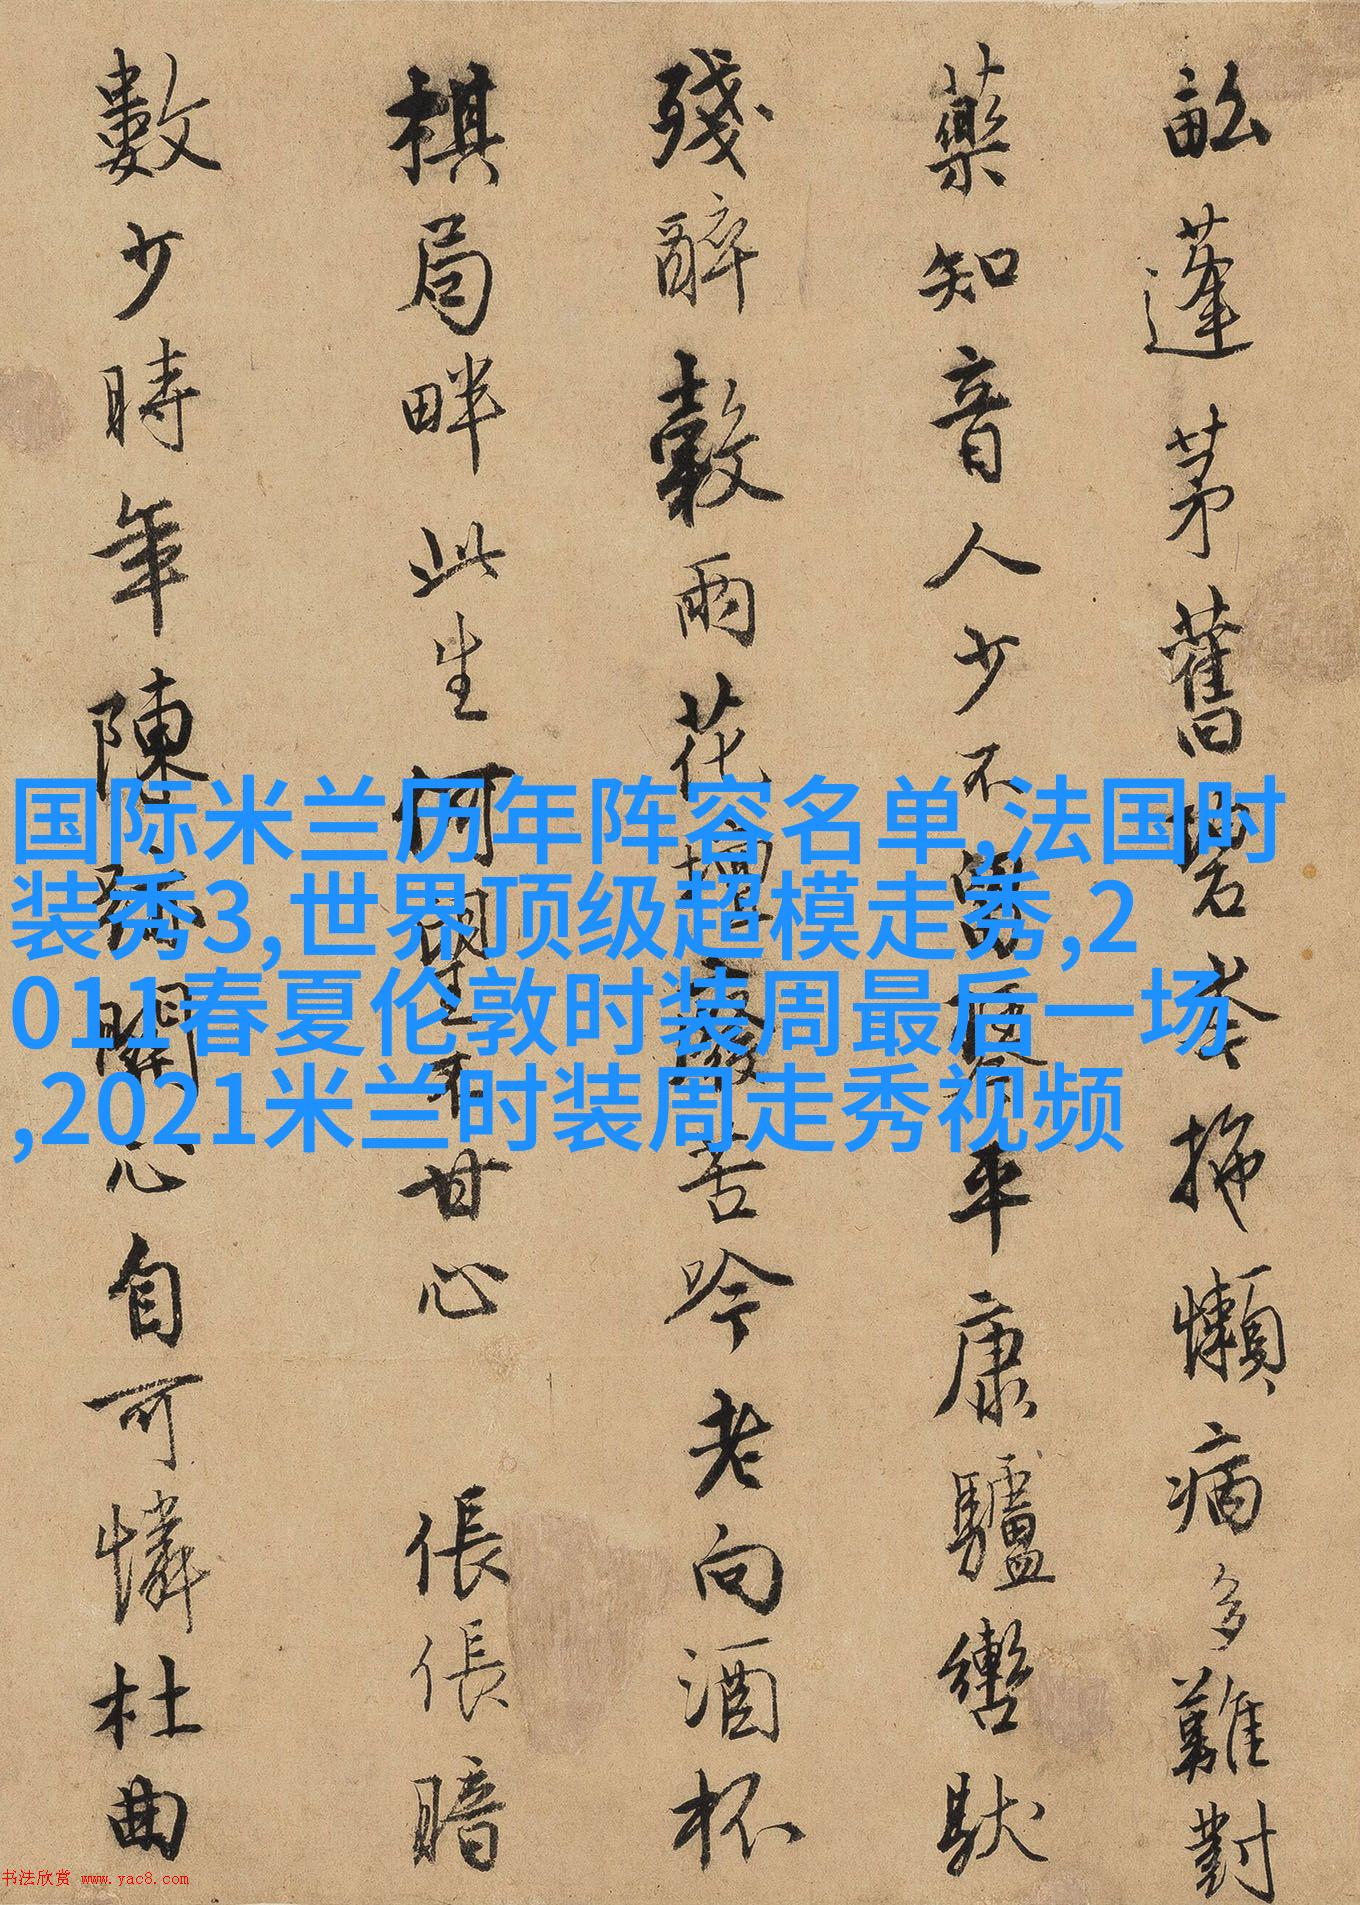 畆蓬茅舊碧苔拖懶病多難對
藥知音人少不留琴平康驢轡馱
殘醉穀雨花壇苦吟老向酒杯
棋局畔此生何望不甘心 倀倀暗
數少時年陳跡關心自可憐杜曲
国际米兰历年阵容名单,法国时
装秀3,世界顶级超模走秀,2
011春夏伦敦时装周最后一场
,2021米兰时装周走秀视频
书法欣赏 www.yac8.com